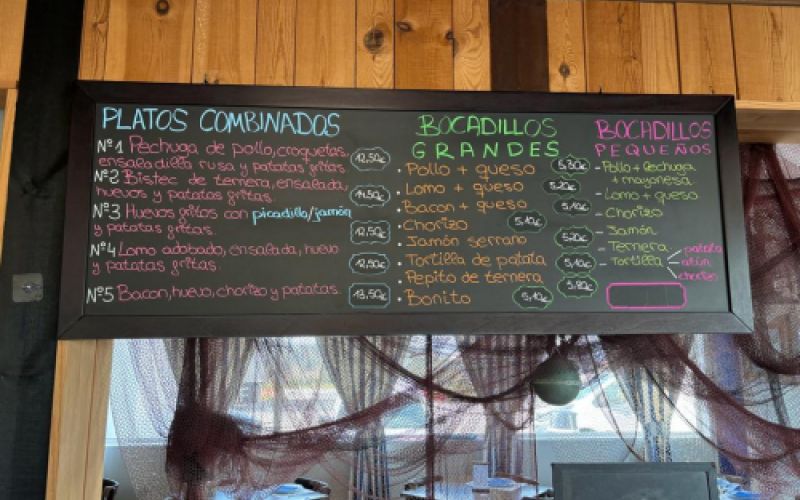 PLATOS COMBINADOS
Nº1 Pechuga de pollo, croquetas,
ensaladilla rusa y patatas fritas. 12,50€
Nº2 Bistec de ternera, ensalada,
huevos y patatas fritas.
Nº3 Huevos fritos con picadillo/jamón
y patatas fritas. 12,50€
Nº4 Lomo adobado, ensalada, huevo
y patatas fritas. 12,50€
Nº5 Bacon, huevo, chorizo y patatas. 13,50€
BOCADILLOS
GRANDES
• Pollo + queso
• Lomo + queso 5,20€
• Bacon + queso 5,10€
• Chorizo 5,10€
• Jamón serrano 5,20€
• Tortilla de patata 5,10€
• Pepito de ternera 5,80€
• Bonito 5,10€
BOCADILLOS
PEQUEÑOS
- Pollo + lechuga
+ mayonesa
- Lomo + queso
- Chorizo
- Jamón
- Ternera
- Tortilla
patata
atún
chorizo